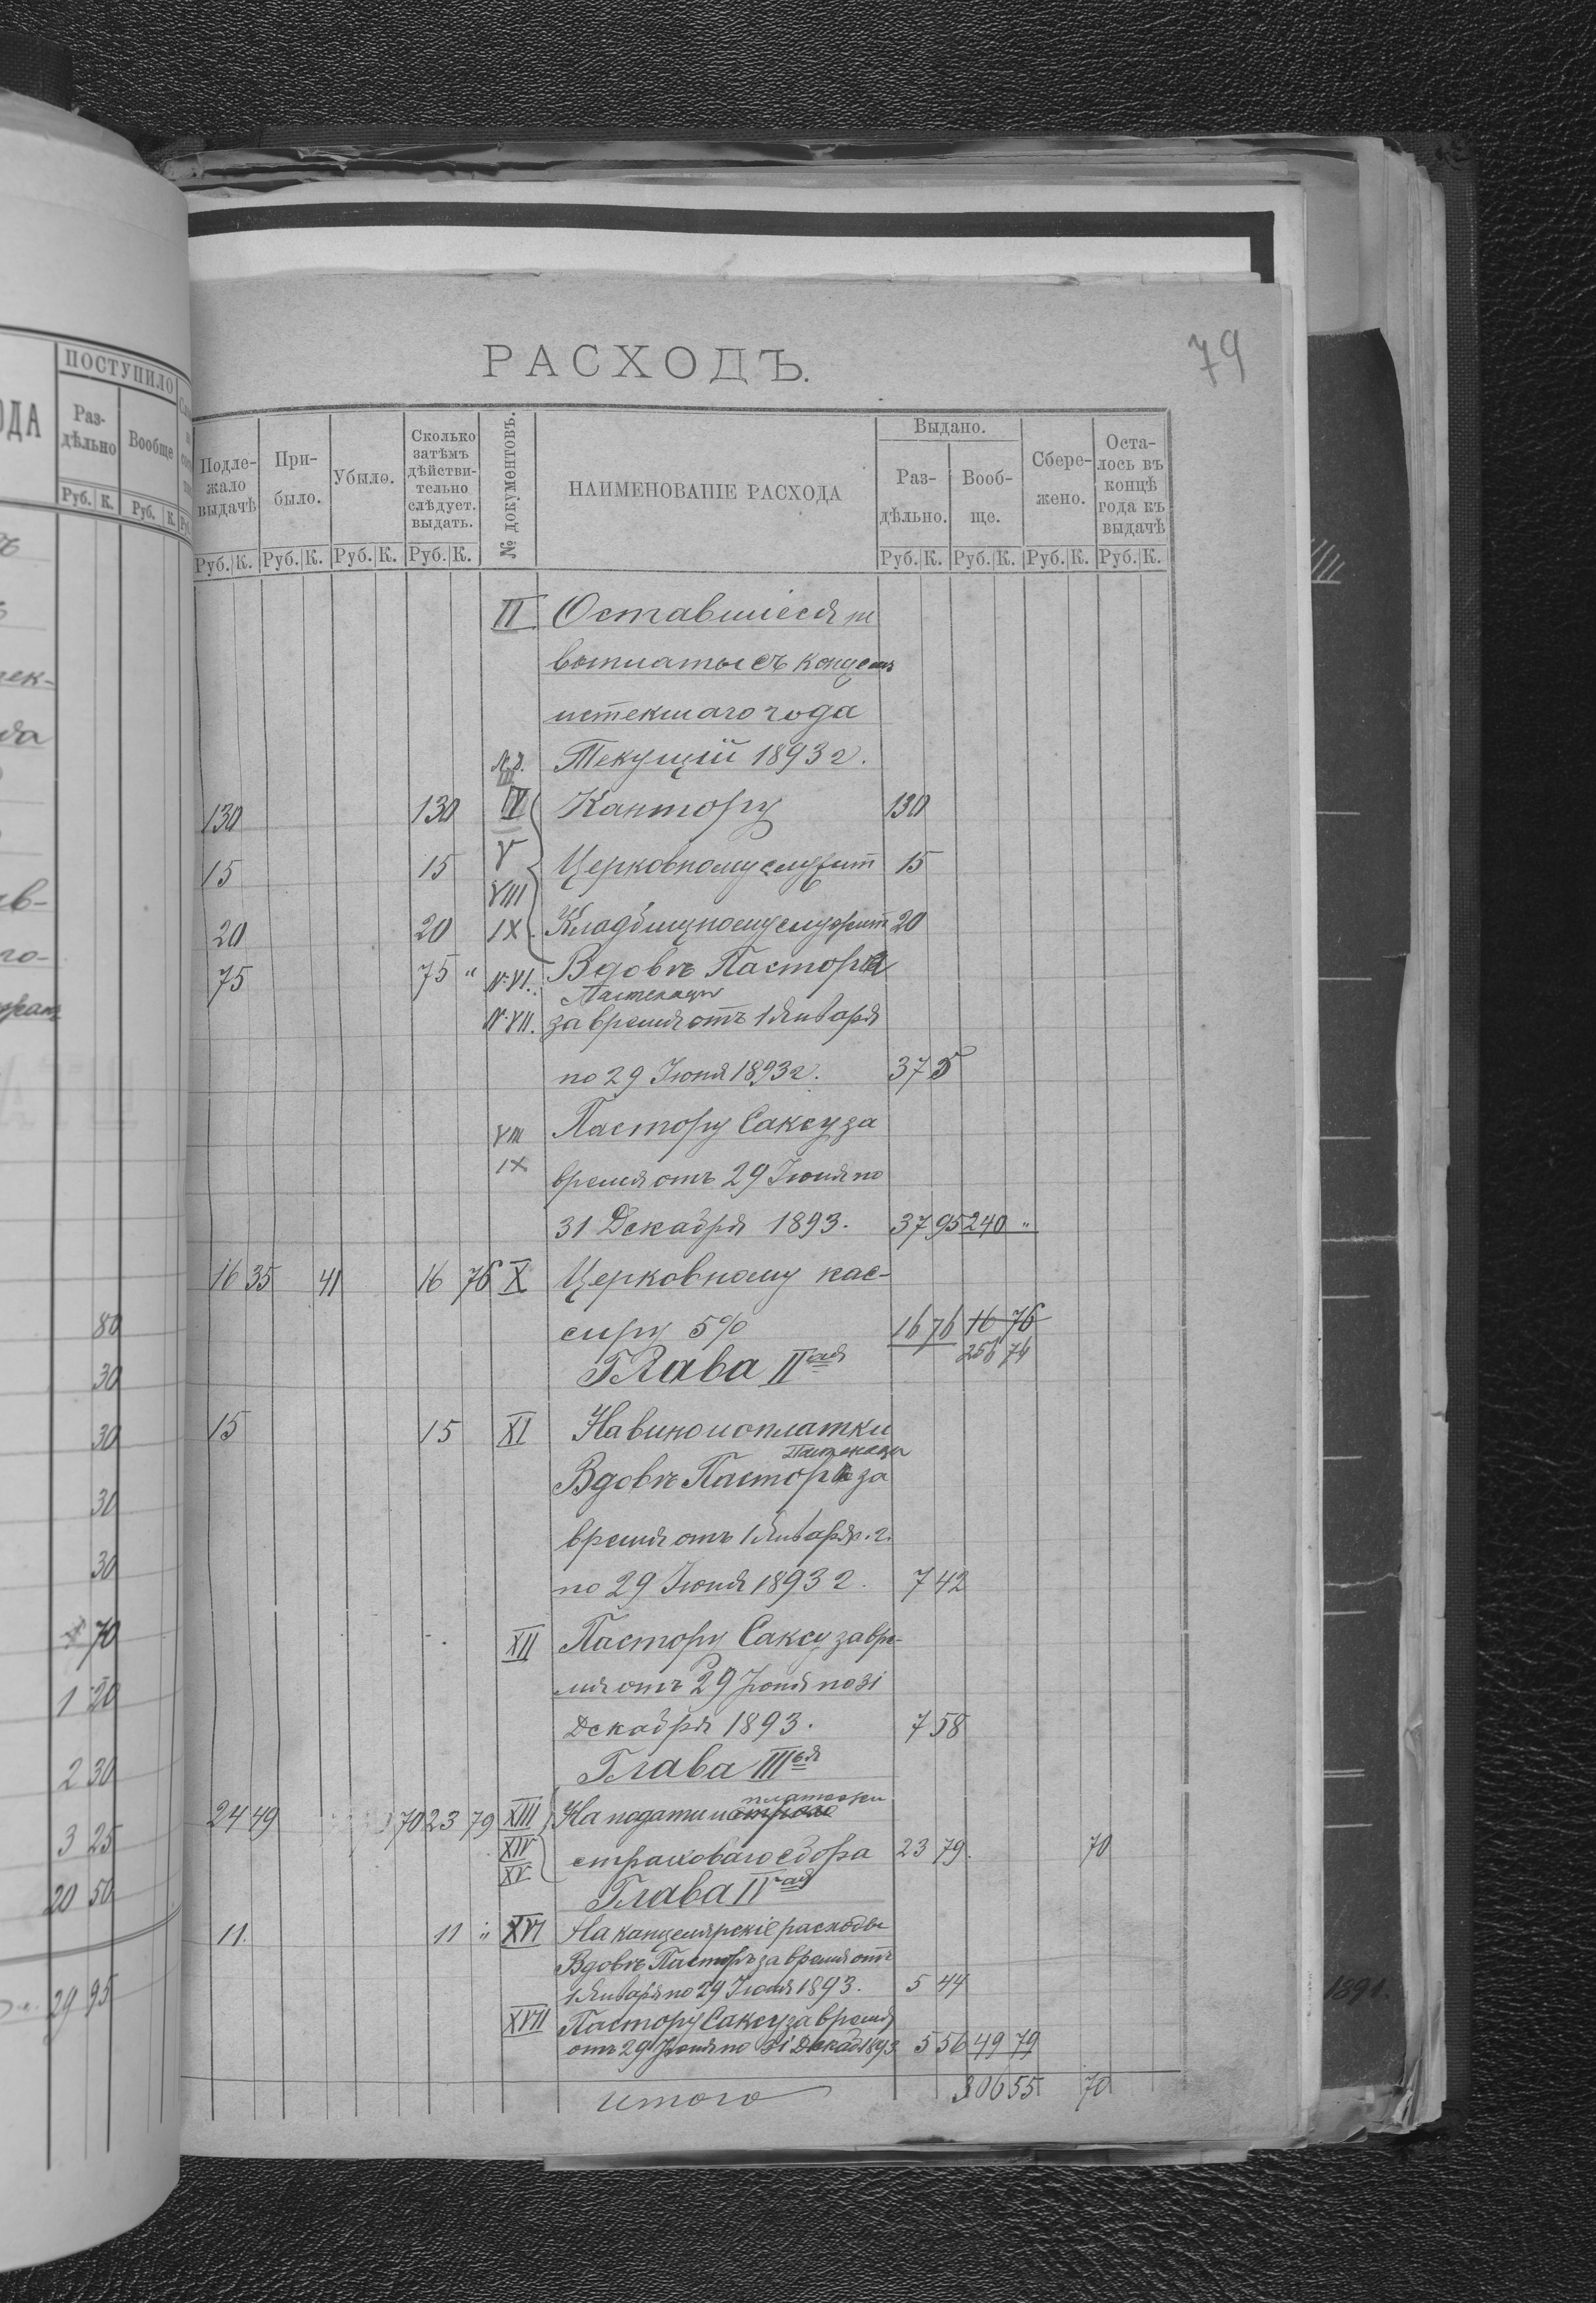 79
РАСХОДЪ.
ПОСТУПИЛО
ОДА
Раз-
дѣльно
Вообще
Руб. К. Руб. К.
80
30
30
30
30
70
1 20
2 30
3 25
20 50
29 95
Подле-
жало
выдачѣ
При-
было.
Убыло.
Сколько
затѣмъ
дѣйстви-
тельно
слѣдует.
выдать.
№ документовъ.
НАИМЕНОВАНІЕ РАСХОДА
Выдано.
Раз-
дѣльно.
Вооб-
ще.
Сбере-
жено.
Оста-
лось въ
концѣ
года къ
выдачѣ
Руб. К. Руб. К. Руб. К. Руб. К. Руб. К. Руб. К. Руб. К. Руб. К.
II Оставшіеся
съ
истекшаго года
Текущій 1893 г.
III
130 130 IV Кантору 130
15 15 V Церковному служит 15
VIII
20 20 IX Кладбищному служит 20
75 75 " № VI. Вдовѣ Пастора
№ VII. за время отъ 1 Января
по 29 Іюня 1893 г. 37 5
VIII Пастору Саксу за
IX время отъ 29 Іюня по
31 Декабря 1893. 37 95 240 "
16 35 41 16 76 X Церковному кас-
сиру 5% 16 76 16 76
Глава IIая 256 76
15 15 XI На вино и оплатки
Вдовѣ за
время отъ 1 Января с. г.
по 29 Іюня 1893 г. 7 42
XII Пастору Саксу за вре-
мя отъ 29 Іюня по 31
Декабря 1893. 7 58
Глава IIIья
24 49 70 23 79 XIII На подати и
XIV страховаго сбора 23 79. 70
XV
Глава IVая
11. 11 " XVI На канцелярскіе расходы
Вдовѣ за время отъ
1 Января по 29 Іюня 1893. 5 44
XVII Пастору Саксу за время
отъ 29 Іюня по 31 Декаб 1893 5 56 49 79
итого 306 55 70
1891.